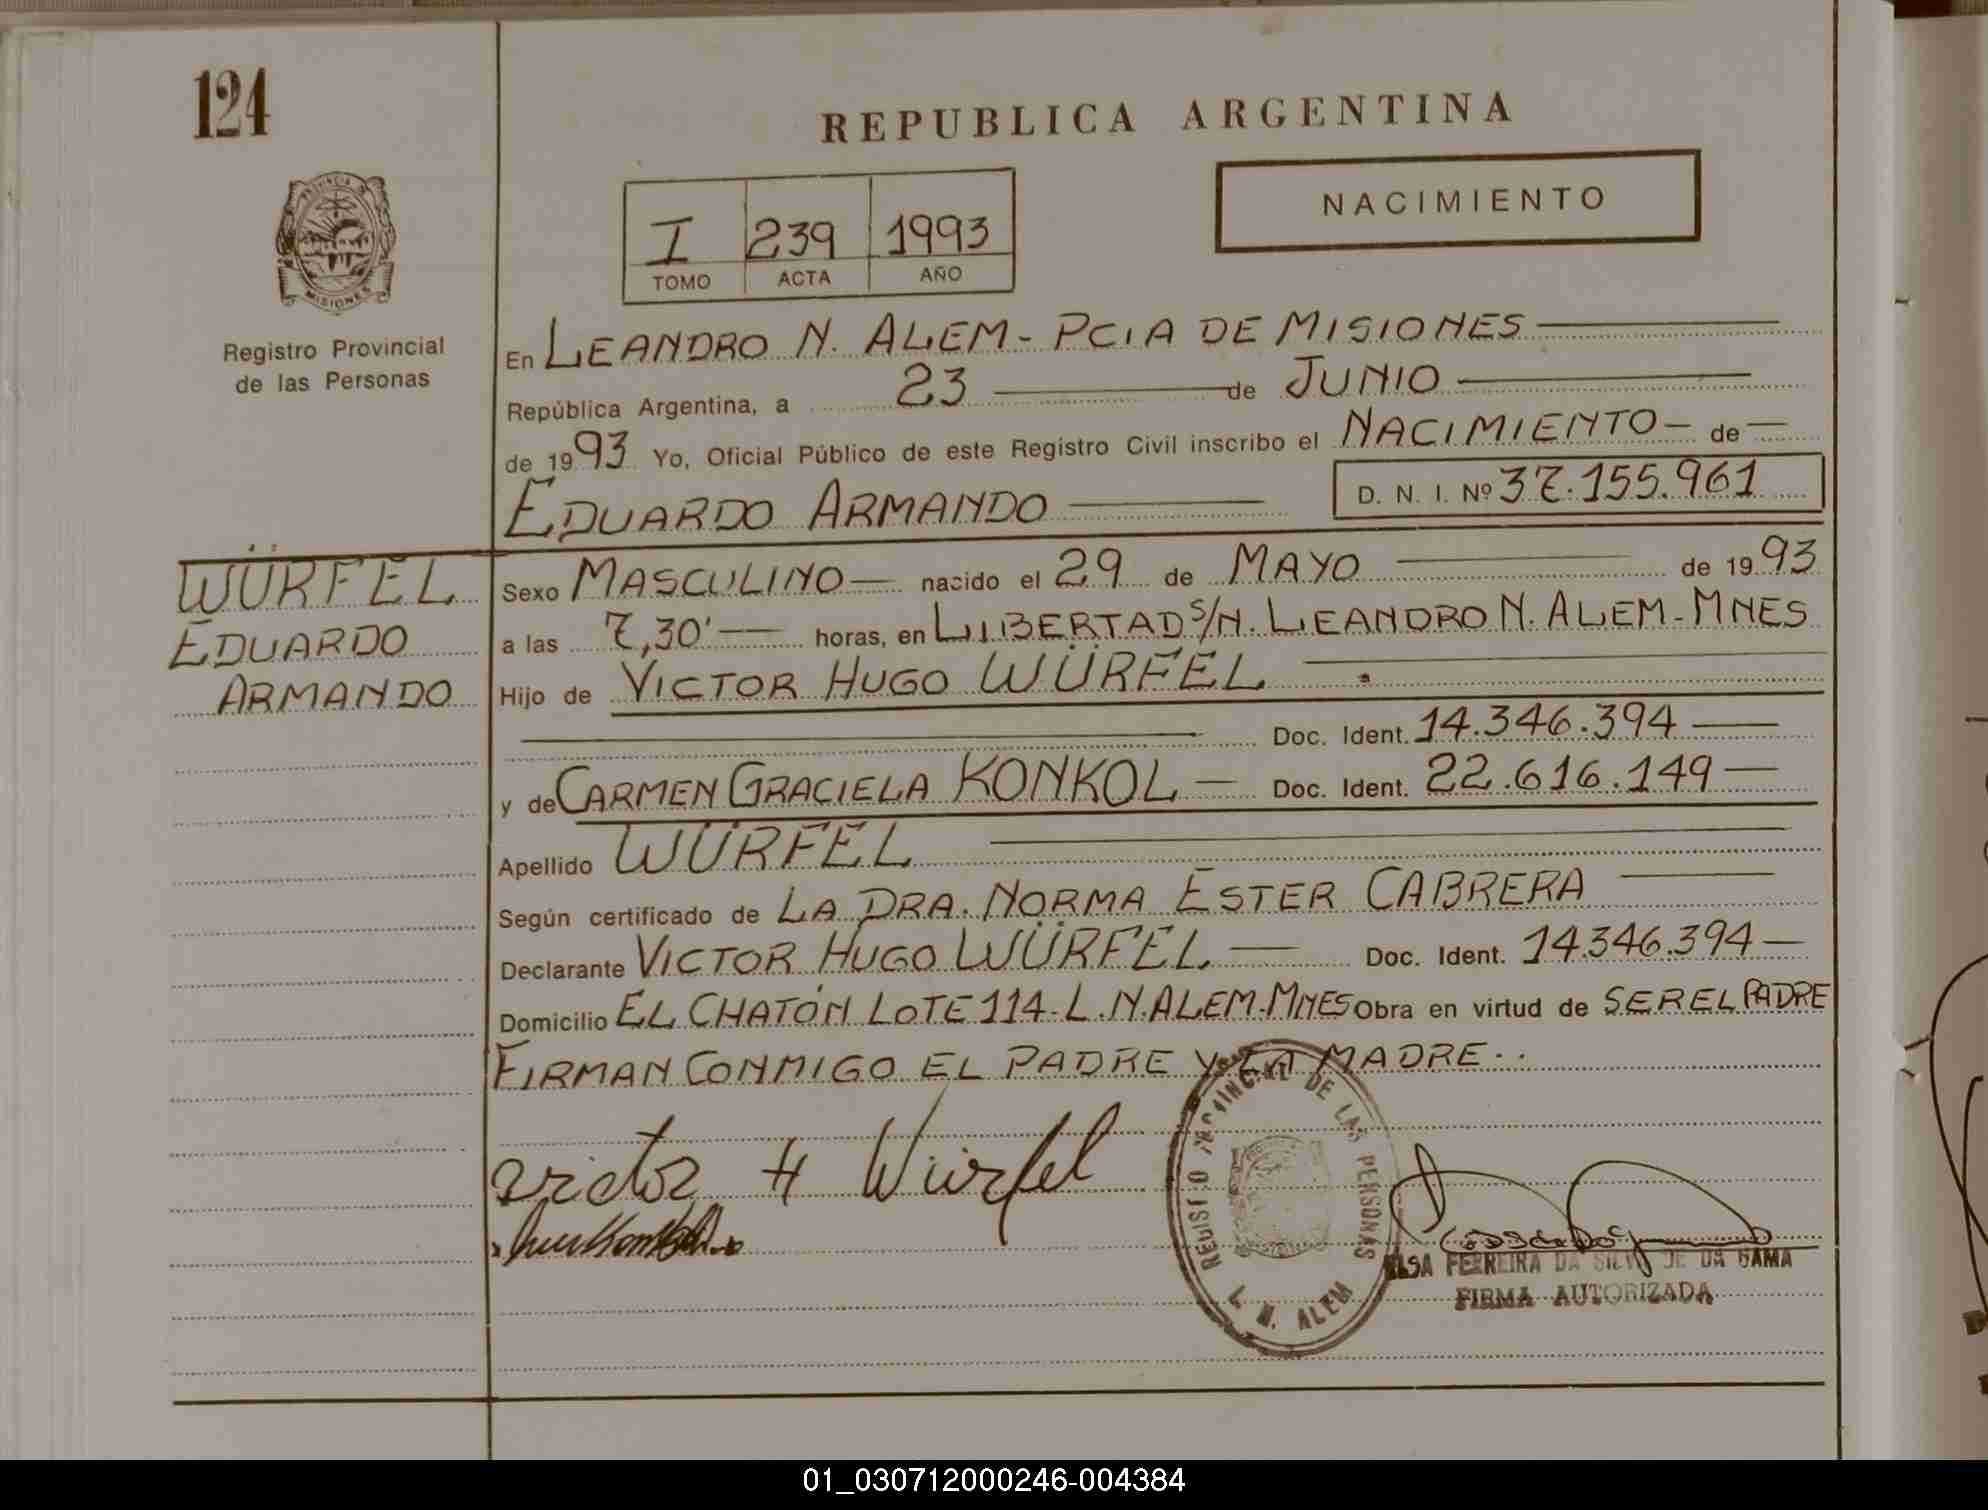 124
REPUBLICA ARGENTINA
PROVINCIA DE
MISIONES
Registro Provincial
de las Personas
I 239 1993
TOMO ACTA AÑO
NACIMIENTO
En LEANDRO N. ALEM - PCIA DE MISIONES
República Argentina, a 23 de JUNIO
de 1993 Yo, Oficial Público de este Registro Civil inscribo el NACIMIENTO - de
EDUARDO ARMANDO
D. N. I. Nº 37.155.961
WÜRFEL
EDUARDO
ARMANDO
Sexo MASCULINO nacido el 29 de MAYO de 1993
a las 7,30' horas, en LIBERTAD S/N. LEANDRO N. ALEM - MNES
Hijo de VICTOR HUGO WÜRFEL
Doc. Ident. 14.346.394
y de CARMEN GRACIELA KONKOL Doc. Ident. 22.616.149
Apellido WÜRFEL
Según certificado de LA DRA. NORMA ESTER CABRERA
Declarante VICTOR HUGO WÜRFEL Doc. Ident. 14.346.394
Domicilio EL CHATÓN LOTE 114 - L.N. ALEM - MNES Obra en virtud de SER EL PADRE
FIRMAN CONMIGO EL PADRE Y LA MADRE..
Victor H Würfel
REGISTRO PROVINCIAL DE LAS PERSONAS
L. N. ALEM
ELSA FERREIRA DA SILVA DE DA GAMA
FIRMA AUTORIZADA
01_030712000246-004384